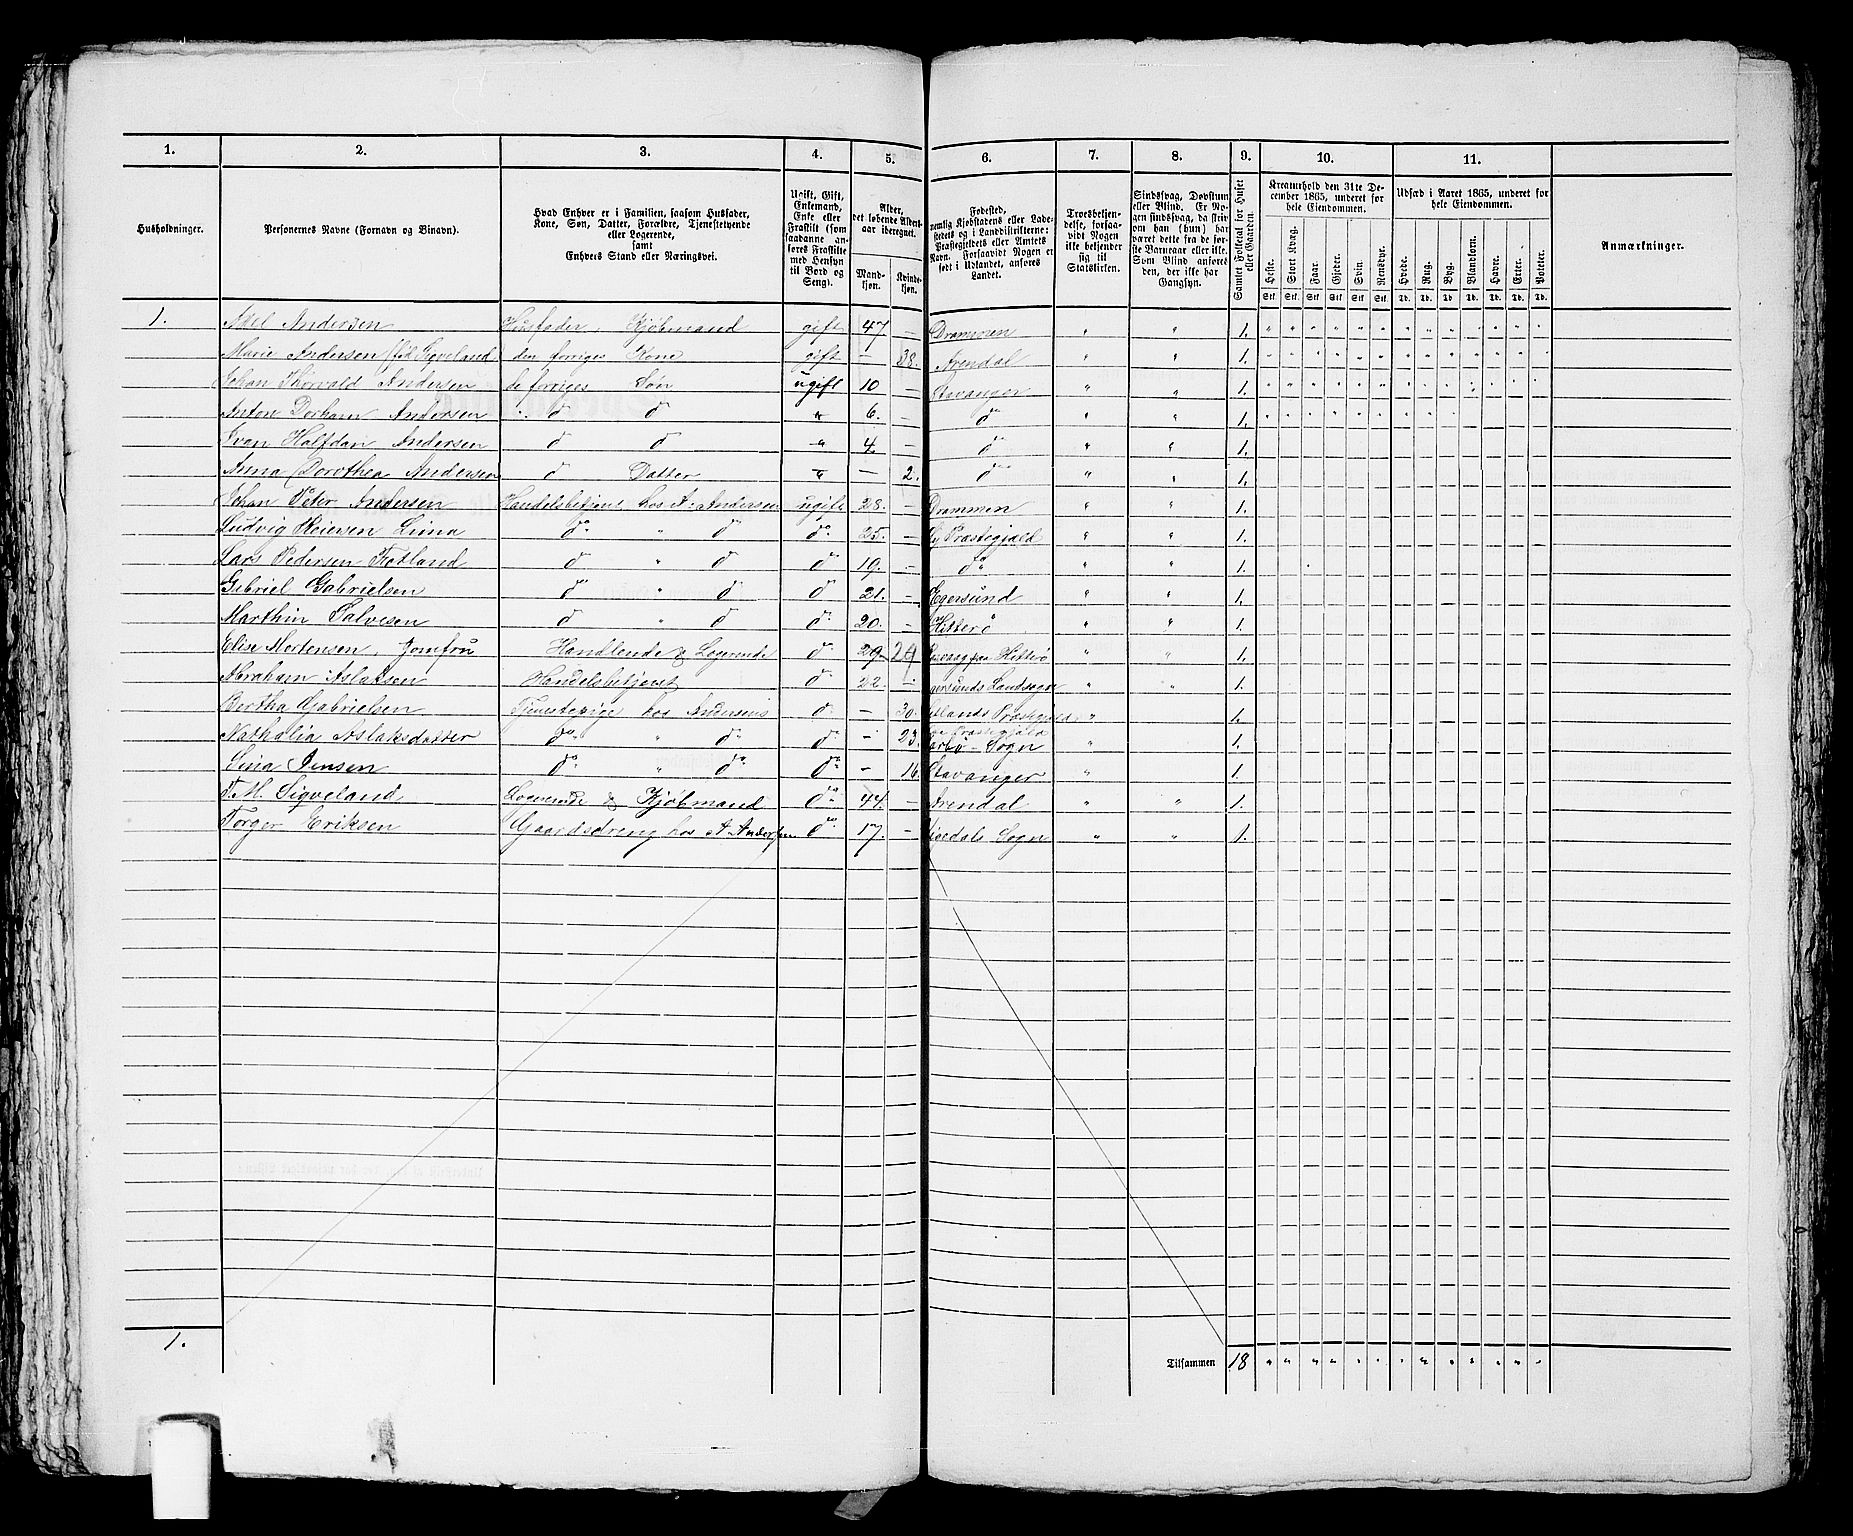 1. 2. 3. 4. 5. 6. 7. 8. 9. 10. 11.
Husholdninger.
Personernes Navne (Fornavn og Binavn).
Hvad Enhver er i Familien, saasom Husfader, Kone, Søn, Datter, Forældre, Tjenestetyende eller Logerende, samt Enhvers Stand eller Næringsvei.
Ugift, Gift, Enkemand, Enke eller Fraskilt (som saadanne anføres Fraskilte med Hensyn til Bord og Seng).
Alder, det løbende Alders-aar iberegnet.
Mand-kjøn. Kvinde-kjøn.
Fødested, nemlig Kjøbstadens eller Ladestedets og i Landdistrikterne: Præstegjeldets eller Amtets Navn. Forsaavidt Nogen er født i Udlandet, anføres Landet.
Troesbekjendelse, forsaavidt Nogen ikke bekjender sig til Statskirken.
Sindssvag, Døvstum eller Blind. Er Nogen sindssvag, da skriv om han (hun) har været dette fra de første Barneaar eller ikke. Som Blind anføres den, der ikke har Gangsyn.
Samlet Folketal for Huset eller Gaarden.
Kreaturhold den 31te December 1865, underet for hele Eiendommen.
Heste. Stort Kvæg. Faar. Gjeder. Svin. Rensdyr.
Stk. Stk. Stk. Stk. Stk. Stk.
Udsæd i Aaret 1865, underet for hele Eiendommen.
Hvede. Rug. Byg. Blandkorn. Havre. Erter. Poteter.
Td. Td. Td. Td. Td. Td. Td.
Anmærkninger.
1. Axel Andersen Husfader, Kjøbmand gift 47. – Drammen " " 1.
Marie Andersen (fød Sigveland) den forriges Kone gift – 38. Arendal " " 1.
Johan Thorvald Andersen de forriges Søn ugift 10 – Stavanger " " 1.
Anton Dorham Andersen d d " 6. – do " " 1.
Ivan Halfdan Andersen d d " 4. – d " " 1.
Anna Dorothea Andersen d Datter " – 2. do " " 1.
Johan Peter Andersen Handelsbetjent hos A. Andersen ugift 28. – Drammen " " 1.
Ludvig Reiersen Lima do " d do 25. – Præstegjæld " " 1.
Lars Pedersen Fotland d " d d 19. – do " " 1.
Gabriel Gabrielsen do " d d 21. – Egersund " " 1.
Marthin Salvesen d " d do 20. – Hitterø " " 1.
Elise Mortensen, Jomfru Handlende & Logerende do 29. 29 Hitterø " " 1.
Abraham Aslaksen Handelsbetjent d 22. – Landsogn " " 1.
Bertha Gabrielsen Tjenestepige hos Andersens d – 30. Præstegjæld " 1.
Nathalia Aslaksdatter do " d do – 23. Præstegjæld Sogn " 1.
Sina Jensen do " do do – 16. Stavanger " 1.
T. M. Sigveland Logerende & Kjøbmand do 44. – Arendal " " 1.
Torger Eriksen Gaardsdreng hos A. Andersen do 17. – Sogn " " 1.
1. Tilsammen 18 " " " " " " " " " " " " "